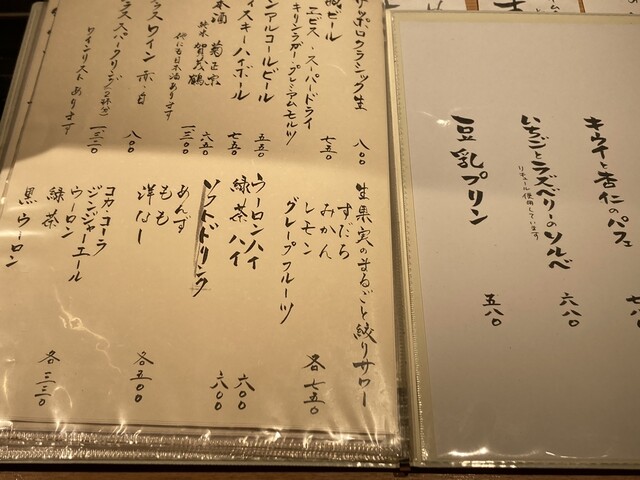 サッポロクラシック生 八〇〇
瓶ビール 七五〇
エビス・スーパードライ
キリンラガー・プレミアムモルツ
ノンアルコールビール 五五〇
ウィスキーハイボール 七五〇
日本酒 菊正宗 六五〇
純米 賀茂鶴 一三〇〇
他にも日本酒あります
グラスワイン 赤・白 八〇〇
グラススパークリング(2杯分) 一三二〇
ワインリストあります
生果実のまるごと絞りサワー
すだち
みかん
レモン
グレープフルーツ
各七五〇
ウーロンハイ 六〇〇
緑茶ハイ 六〇〇
ソフトドリンク
あんず
もも
洋なし
各五〇〇
コカ・コーラ
ジンジャーエール
ウーロン
緑茶
黒ウーロン
各三三〇
キウイと杏仁のパフェ
いちごとラズベリーのソルベ 六八〇
リキュール使用しています
豆乳プリン 五八〇